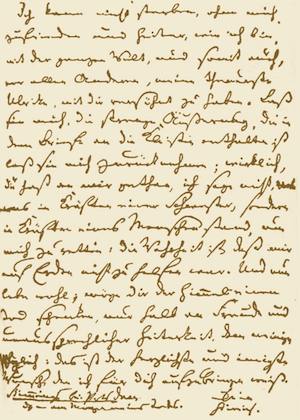 Ich kann nicht sterben, ohne mich,
zufrieden und heiter, wie ich bin,
mit der ganzen Welt, und somit auch,
vor allen Anderen, meine theuerste
Ulrike, mit dir versöhnt zu haben. Laß
sie mich, die strenge Äußerung, die in
dem Briefe an die Kleisten enthalten ist
laß sie mich zurücknehmen; wirklich,
du hast an mir gethan, ich sage nicht,
was in Kräften einer Schwester, sondern
in Kräften eines Menschen stand, um
mich zu retten: die Wahrheit ist, daß mir
auf Erden nicht zu helfen war. Und nun
lebe wohl; möge dir der Himmel einen
Tod schenken, nur halb an Freude und
unaussprechlicher Heiterkeit, dem meinigen
gleich: das ist der herzlichste und innigste
Wunsch, den ich für dich aufzubringen weiß.
Stimmings bei Potsdam Dein
d. – am Morgen meines Todes. Heinrich.